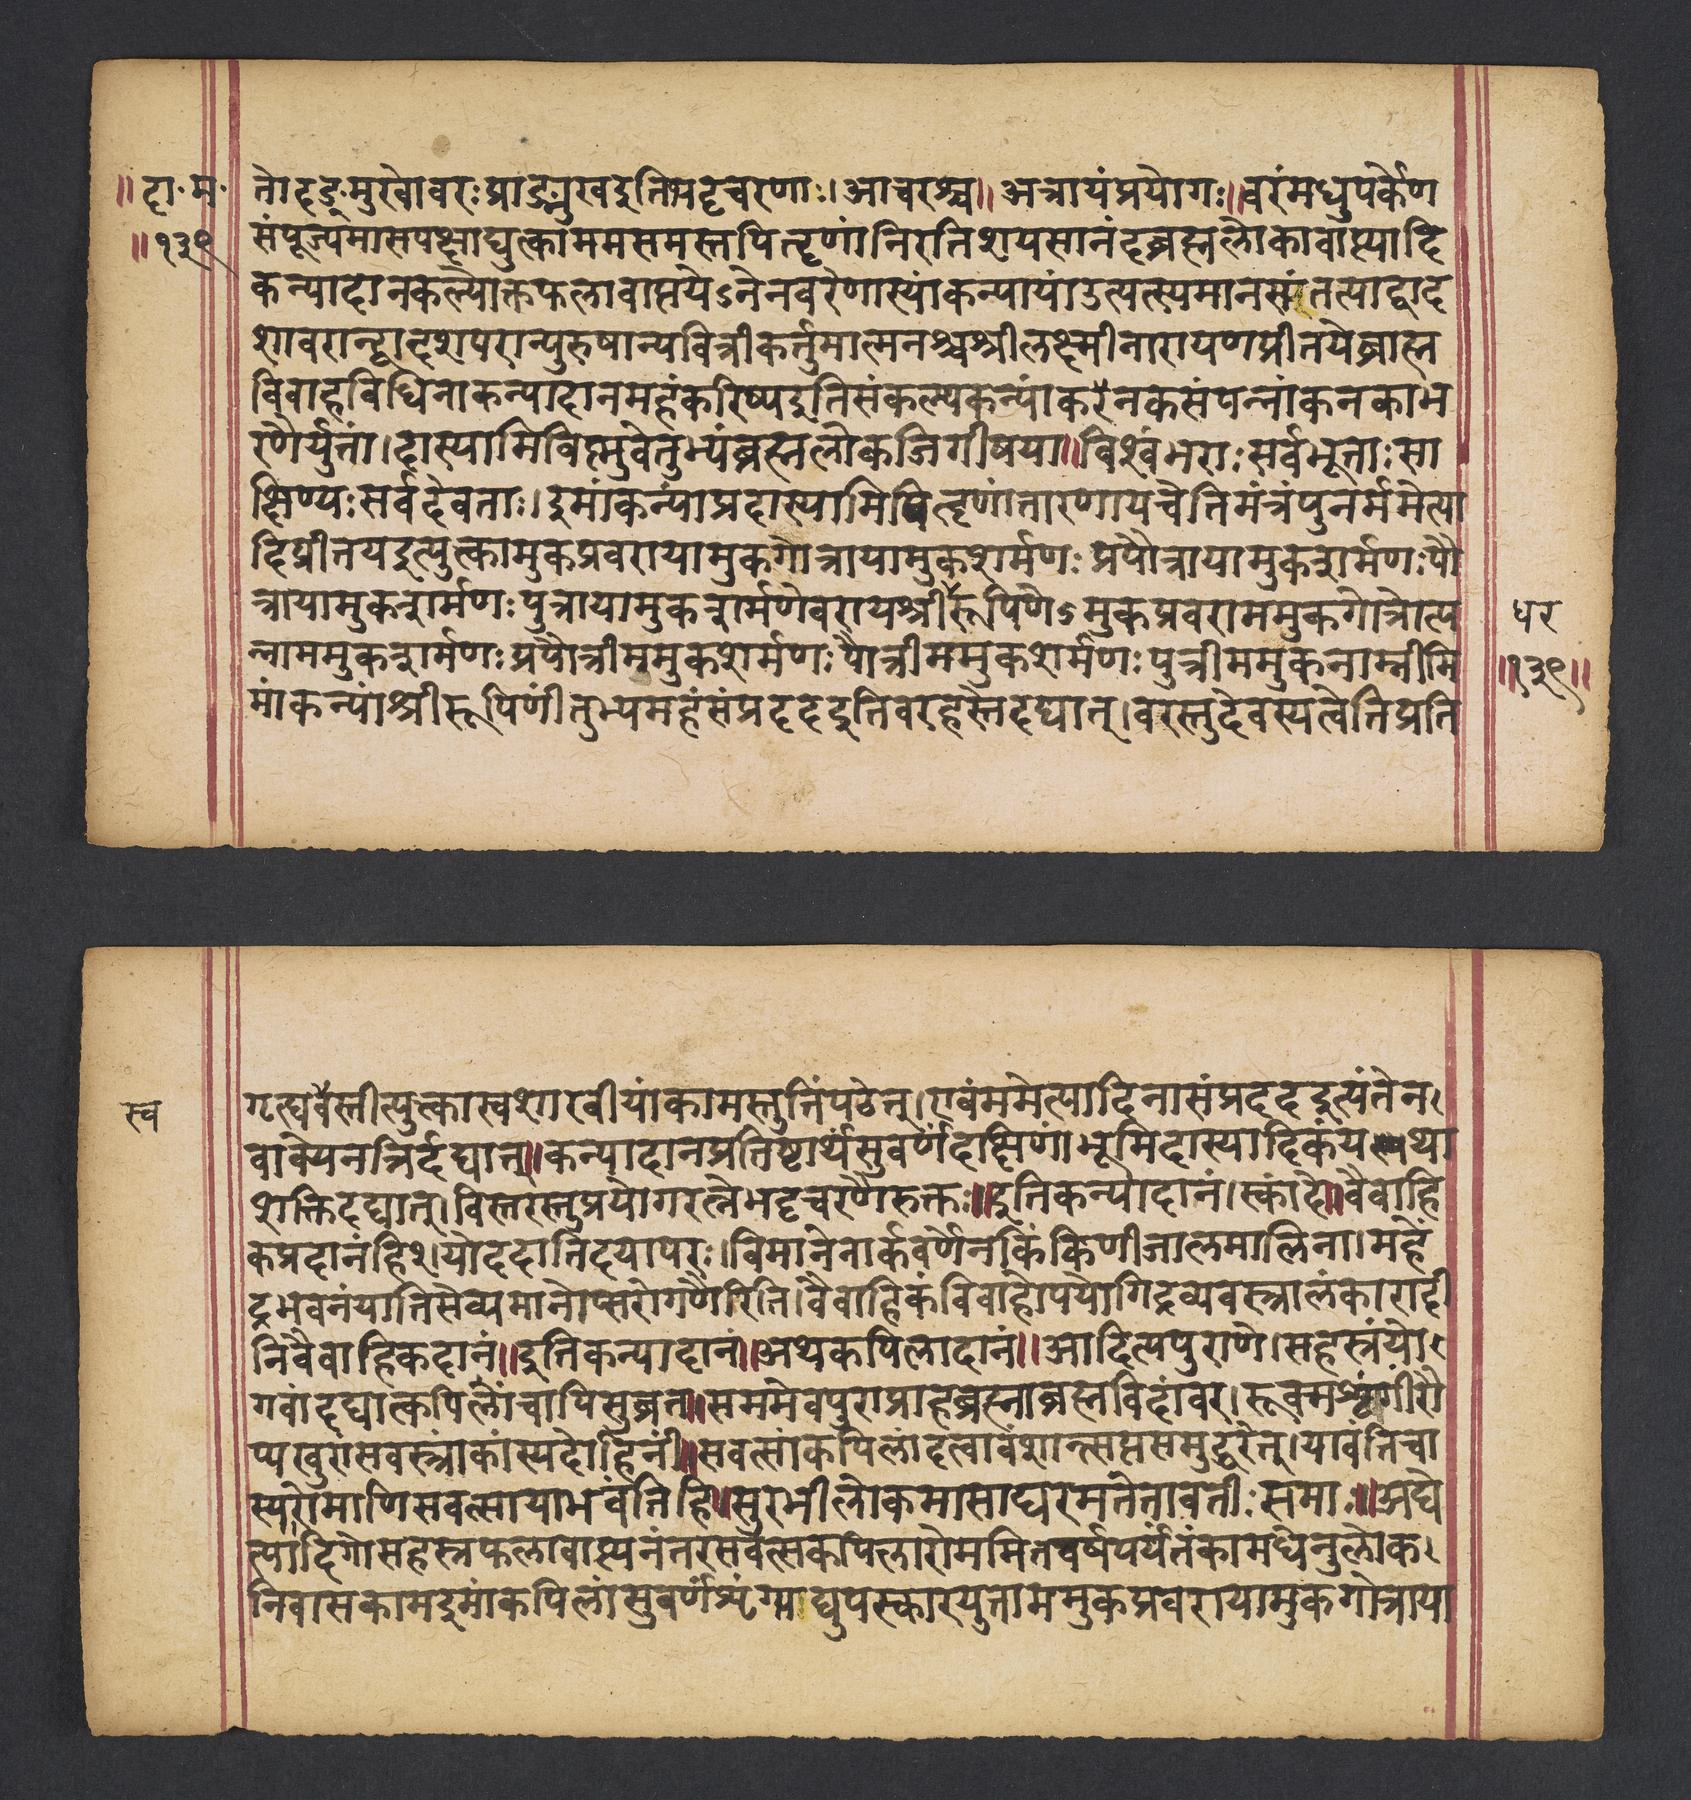 ॥दा॰म॰ तोदङ्मुखोवरःप्राङ्मुखइतिभट्टचरणाः।आचरश्च॥अत्रायंप्रयोगः॥वरंमधुपर्केण
॥१३९ संपूज्यमासपक्षाद्युत्कामम समस्तपितॄणांनिरतिशयसानंदब्रह्मलोकावाप्त्यादि
कन्यादानकल्पोक्तफलावाप्तयेऽनेनवरेणास्यांकन्यायांउत्पत्स्यमानसंतत्याद्वाद
शावरान्द्वादशपरान्पुरुषान्पवित्रीकर्तुमात्मनश्चश्रीलक्ष्मीनारायणप्रीतयेब्राह्म
विवाहविधिनाकन्यादानमहंकरिष्यइतिसंकल्प्यकन्यांकनकसंपन्नांकनकाभ
रणैर्युतां।दास्यामिविष्णुवेतुभ्यंब्रह्मलोकजिगीषया॥विश्वंभराःसर्वभूताःसा
क्षिण्यःसर्वदेवताः।इमांकन्यांप्रदास्यामिपितॄणांतारणायचेतिमंत्रंपुनर्ममेत्या
दिप्रीतयइत्युत्कामुकप्रवरायामुकगोत्रायामुकशर्मणःप्रपौत्रायामुकशर्मणःपौ
त्रायामुकशर्मणःपुत्रायामुकशर्मणेवरायश्रीरूपिणेऽमुकप्रवराममुकगोत्रोत्प धर
न्नाममुकशर्मणःप्रपौत्रीममुकशर्मणःपौत्रीममुकशर्मणःपुत्रीममुकनाम्नीमि ॥१३९॥
मांकन्यांश्रीरूपिणींतुभ्यमहंसंप्रददइतिवरहस्तेदद्यात्।वरस्तुदेवस्यत्वेतिप्रति
स्व गृह्यवैस्तीत्युत्कास्वशाखीयांकामस्तुतिंपठेत्।एवंममेत्यादिनासंप्रददइत्यंतेन
वाक्येनत्रिर्दद्यात्॥कन्यादानप्रतिष्टार्थंसुवर्णंदक्षिणांभूमिदास्यादिकंयथा
शक्तिदद्यात्।विस्तरस्तुप्रयोगरत्नेभट्टचरणैरुक्तः॥इतिकन्यादानं।स्कांदे॥वैवाहि
कप्रदानंहि।योददातिदयापरः।विमानेनार्कवर्णेनकिंकिणीजालमालिना।महें
द्रभवनंयातिसेव्यमानोप्सरोगणैरिति।वैवाहिकंविवाहोपयोगिद्रव्यवस्त्रालंकारादी
निवैवाहिकदानं॥इतिकन्यादानं॥अथकपिलादानं॥आदित्यपुराणे।सहस्त्रंयो
गवांदद्यात्कपिलांचापिसुव्रत॥सममेवपुराप्राहब्रह्माब्रह्मविदांवर।रूक्मशृंगींरौ
प्यखुरांसवस्त्रांकांस्यदोहिनीं॥सवत्सांकपिलांदत्वावंशान्सप्तसमुद्धरेत्।यावंतिचा
स्यरोमाणिसवत्सायाभवंतिहि॥सुरभीलोकमासाद्यरमतेतावतीःसमाः॥अद्ये
त्यादिगोसहस्त्रफलावाप्त्यनंतरसवत्सकपिलारोममितवर्षपर्यंतंकामधेनुलोक
निवासकामइमांकपिलांसुवर्णशृंग्याद्युपस्कारयुताममुकप्रवरायामुकगोत्राया